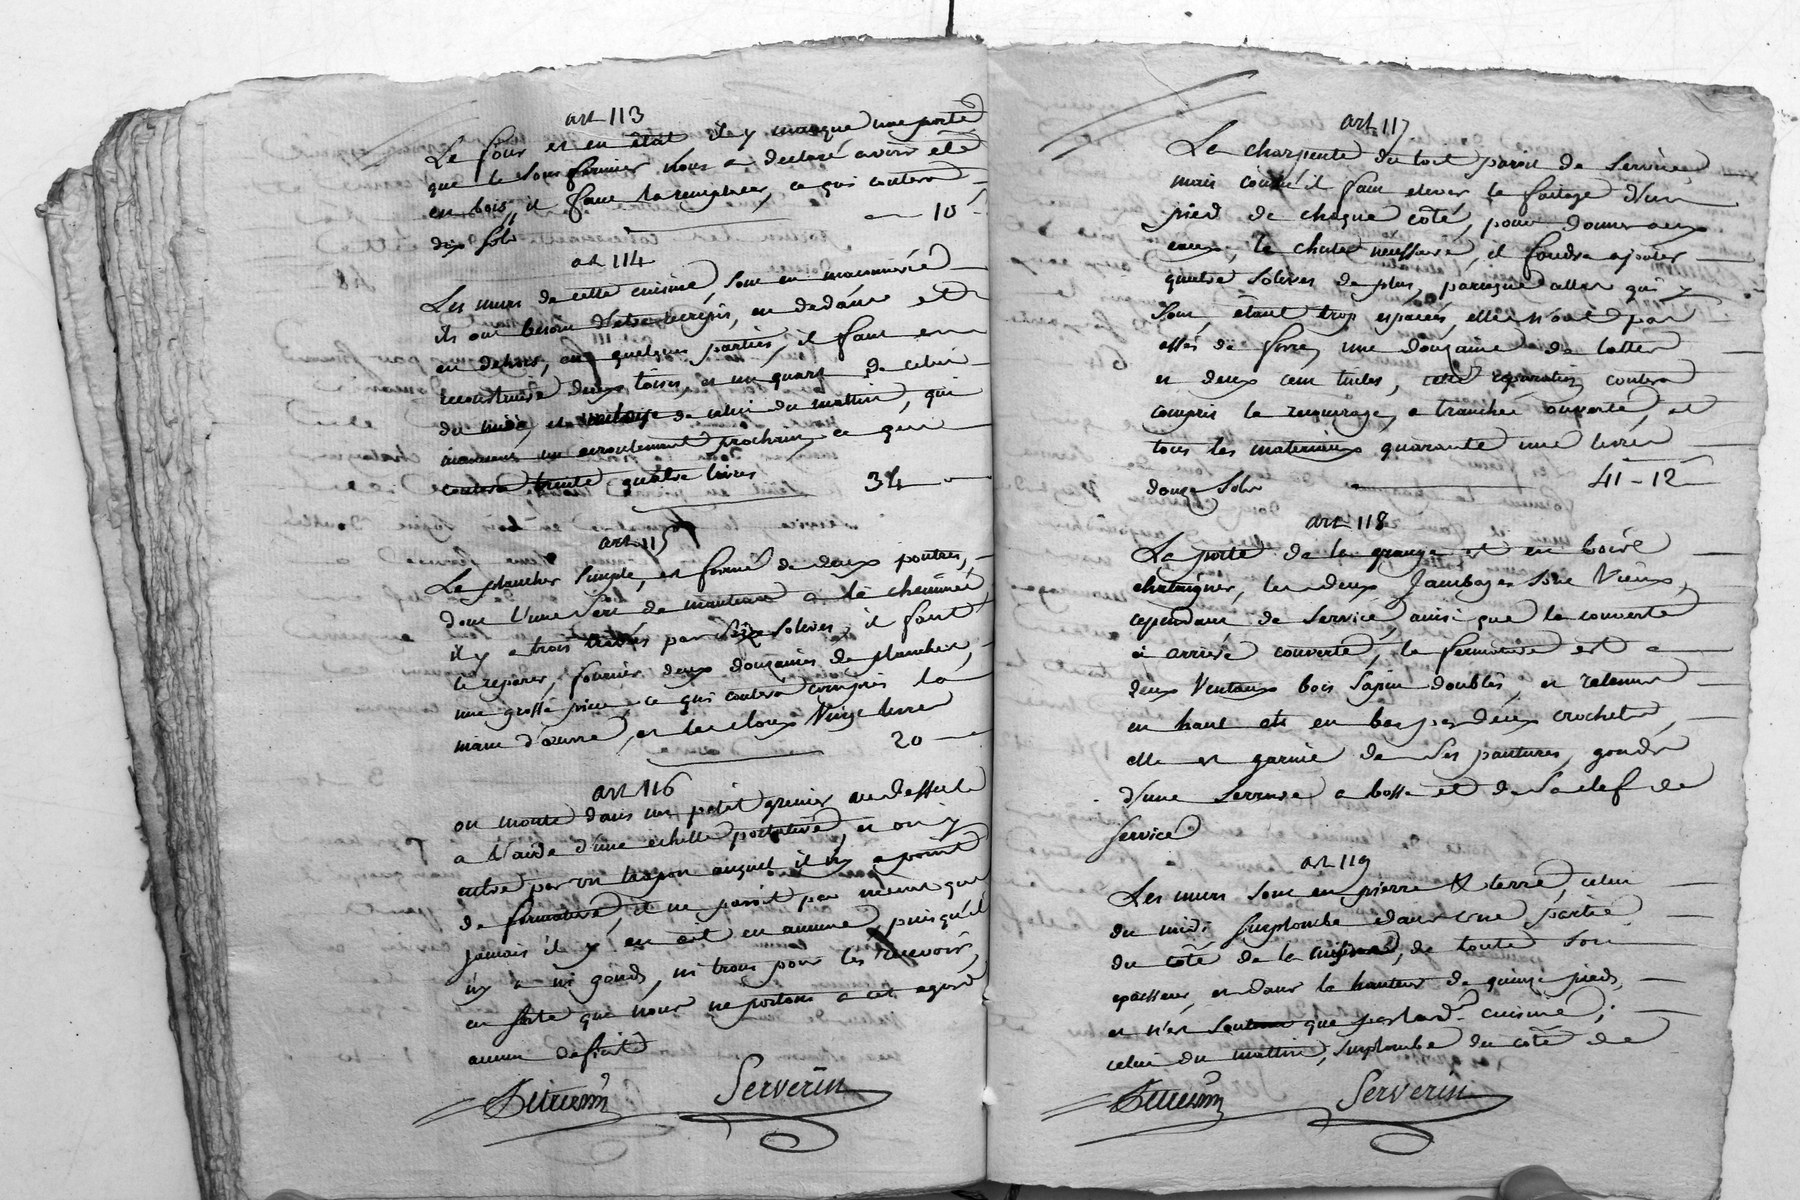 art 113
Le four est en état il y manque une porte
que le sous fermier nous a declaré avoir été
en bois, il faut la remplacer, ce qui coutera
dix sols 10
art 114
Les murs de cette cuisine sont en maconnerie
ils ont besoin d'etre recrepis, en dedans et
en dehors, en quelques parties, il faut en
reconstruire deux toises et un quart de celui
du midi, et de celui du mattin, qui
menacent un ecroulement prochain, ce qui
coutera trente quatre livres 34
art 115
Le plancher simple, est formé de deux poutres,
dont l'une sert de manteau a la cheminée
il y a trois travées par seize solives, il faut
le reparer, fournir deux douzaines de planches,
une grosse piece, ce qui coutera compris la
main d'œuvre, et les cloux vingt livres
20
art 116
on monte dans un petit grenier au dessus
a l'aide d'une echelle portative, et on y
entre par un trapon auquel il n'y a point
de fermeture, il ne paroit pas même que
jamais il y en eut en aucune, puisqu'il
n'y a ni gonds, ni trous pour les recevoir,
en sorte que nous ne portons a cet egard
aucun deficit
Serverin
art 117
La charpente du toit paroit de service,
mais comme il faut elever le faitage d'un
pied de chaque coté, pour donner aux
eaux, la chute necessaire, il faudra ajouter
quatre solives de plus, parceque celles qui y
sont, étant trop espacées, elles n'ont pas
assés de force, une douzaine de lattes
et deux cent tuiles, cette reparation coutera
compris le remuage, a tranchée ouverte, et
tous les materiaux quarante une livres
douze sols 41 - 12
art 118
La porte de la grange est en bois
chataigner, les deux jambages sont vieux,
cependant de service, ainsi que la couverte
et arriere couverte, la fermeture est a
deux ventaux bois sapin doublés, et retenus
en haut et en bas par deux crochets,
elle est garnie de ses pantures, gonds
d'une serrure a bosse et de sa clef de
service
art 119
Les murs sont en pierre & terre, celui
du midi surplombe dans une partie
du coté de la cuisine, de toute son
epaisseur, et dans la hauteur de quinze pieds,
et n'est soutenu que par lad.e cuisine;
celui du mattin, surplombe du coté de
Serverin